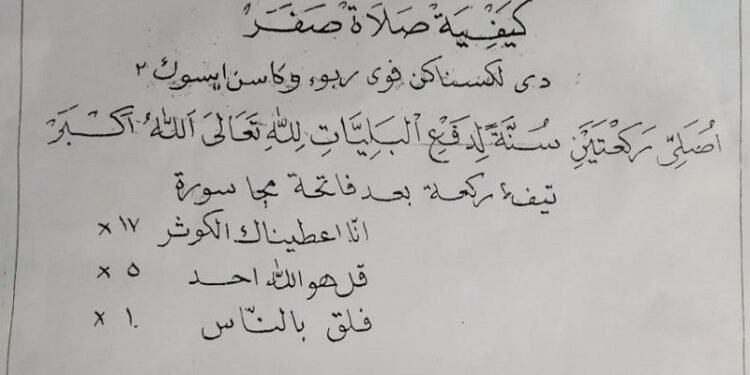 كَيْفِيَّة صَلَاة صَفَرْ
دي لكسناكن فوي ربوء وكاسن ايسوك ٢
اُصَلِّيْ رَكْعَتَيْنِ سُنَّةً لِدَفْعِ الْبَلِيَّاتِ لِلّٰهِ تَعَالَى اَللّٰهُ اَكْبَرْ
تيفء ركعة بعد فاتحة مجا سورة
انّا اعطيناك الكوثر ١٧ ×
قل هو اللّٰه احد ٥ ×
فلق بالنّاس ١ ×